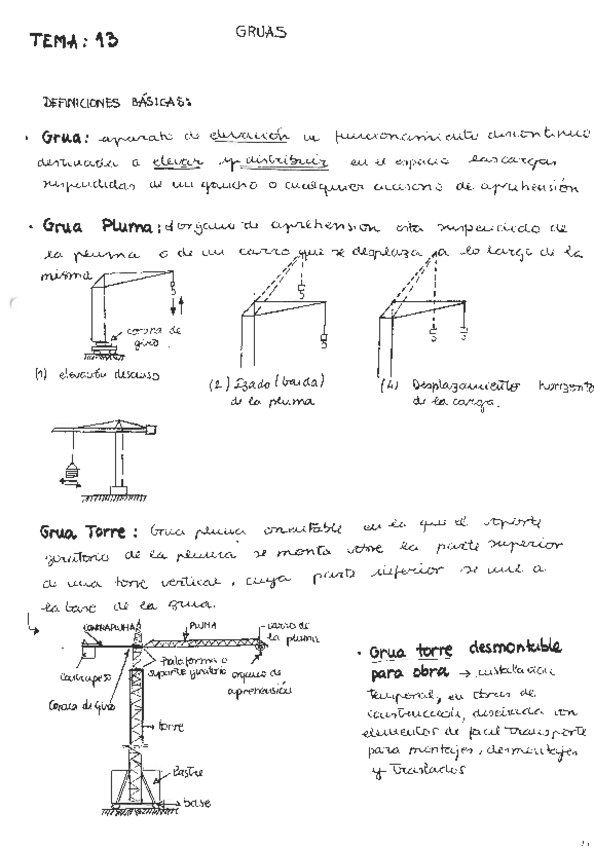 GRUAS
TEMA: 13
DEFINICIONES BÁSICAS:
· Grua: aparato de elevación de funcionamiento discontinuo
destinada a elevar y distribuir en el espacio las cargas
suspendidas de un gancho o cualquier accesorio de aprehensión
· Grua Pluma: órgano de aprehension esta suspendido de
la pluma o de un carro que se desplaza a lo largo de la
misma
corona de
giro.
(1) elevación descenso
(2) Izado (baida)
de la pluma
(4) Desplazamiento horizonta
de la carga.
Grua Torre: Grua pluma orientable en la que el soporte
giratorio de la pluma se monta sobre la parte superior
de una torre vertical, cuya parte inferior se une a
la base de la grua.
CONTRAPLUMA
PLUMA
carro de
la pluma
Plataforma o
soporte giratorio
organo de
aprehensión
Contrapeso
Corona de Giro
torre
Lastre
base
· Grua torre desmontable
para obra → instalacion
temporal, en obras de
construccion, diseñada con
elementos de facil transporte
para montajes, desmontajes
y Traslados